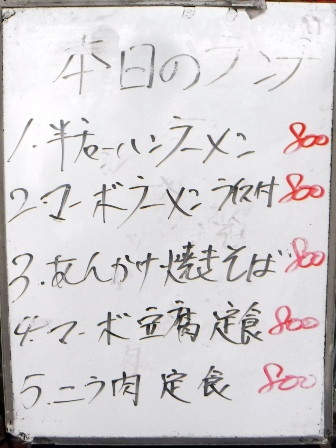 本日のランチ
1.半チャーハンラーメン 800
2.マーボラーメン ライス付 800
3.あんかけ焼きそば 800
4.マーボ豆腐定食 800
5.ニラ肉定食 800